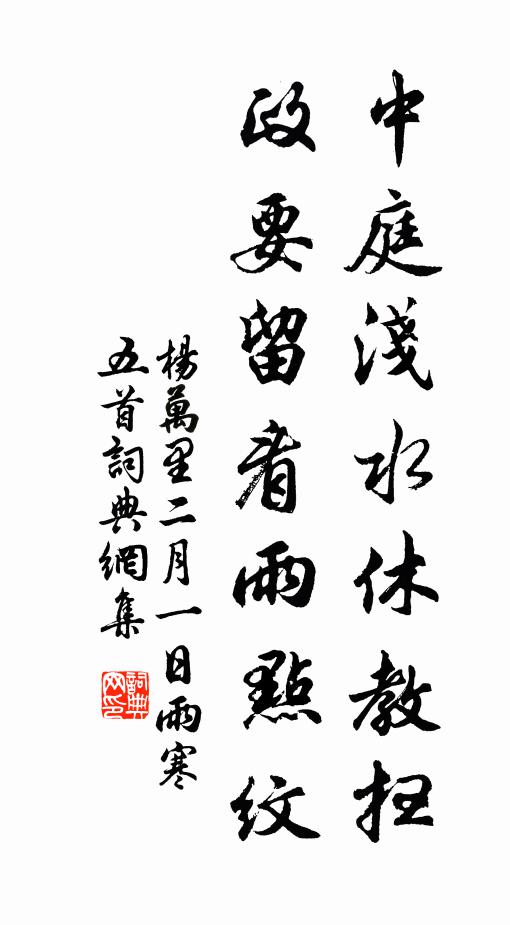 中庭淺水休教扫
政要留看雨點紋
楊萬里二月一日雨寒
五首詞典網集
詞典
网印